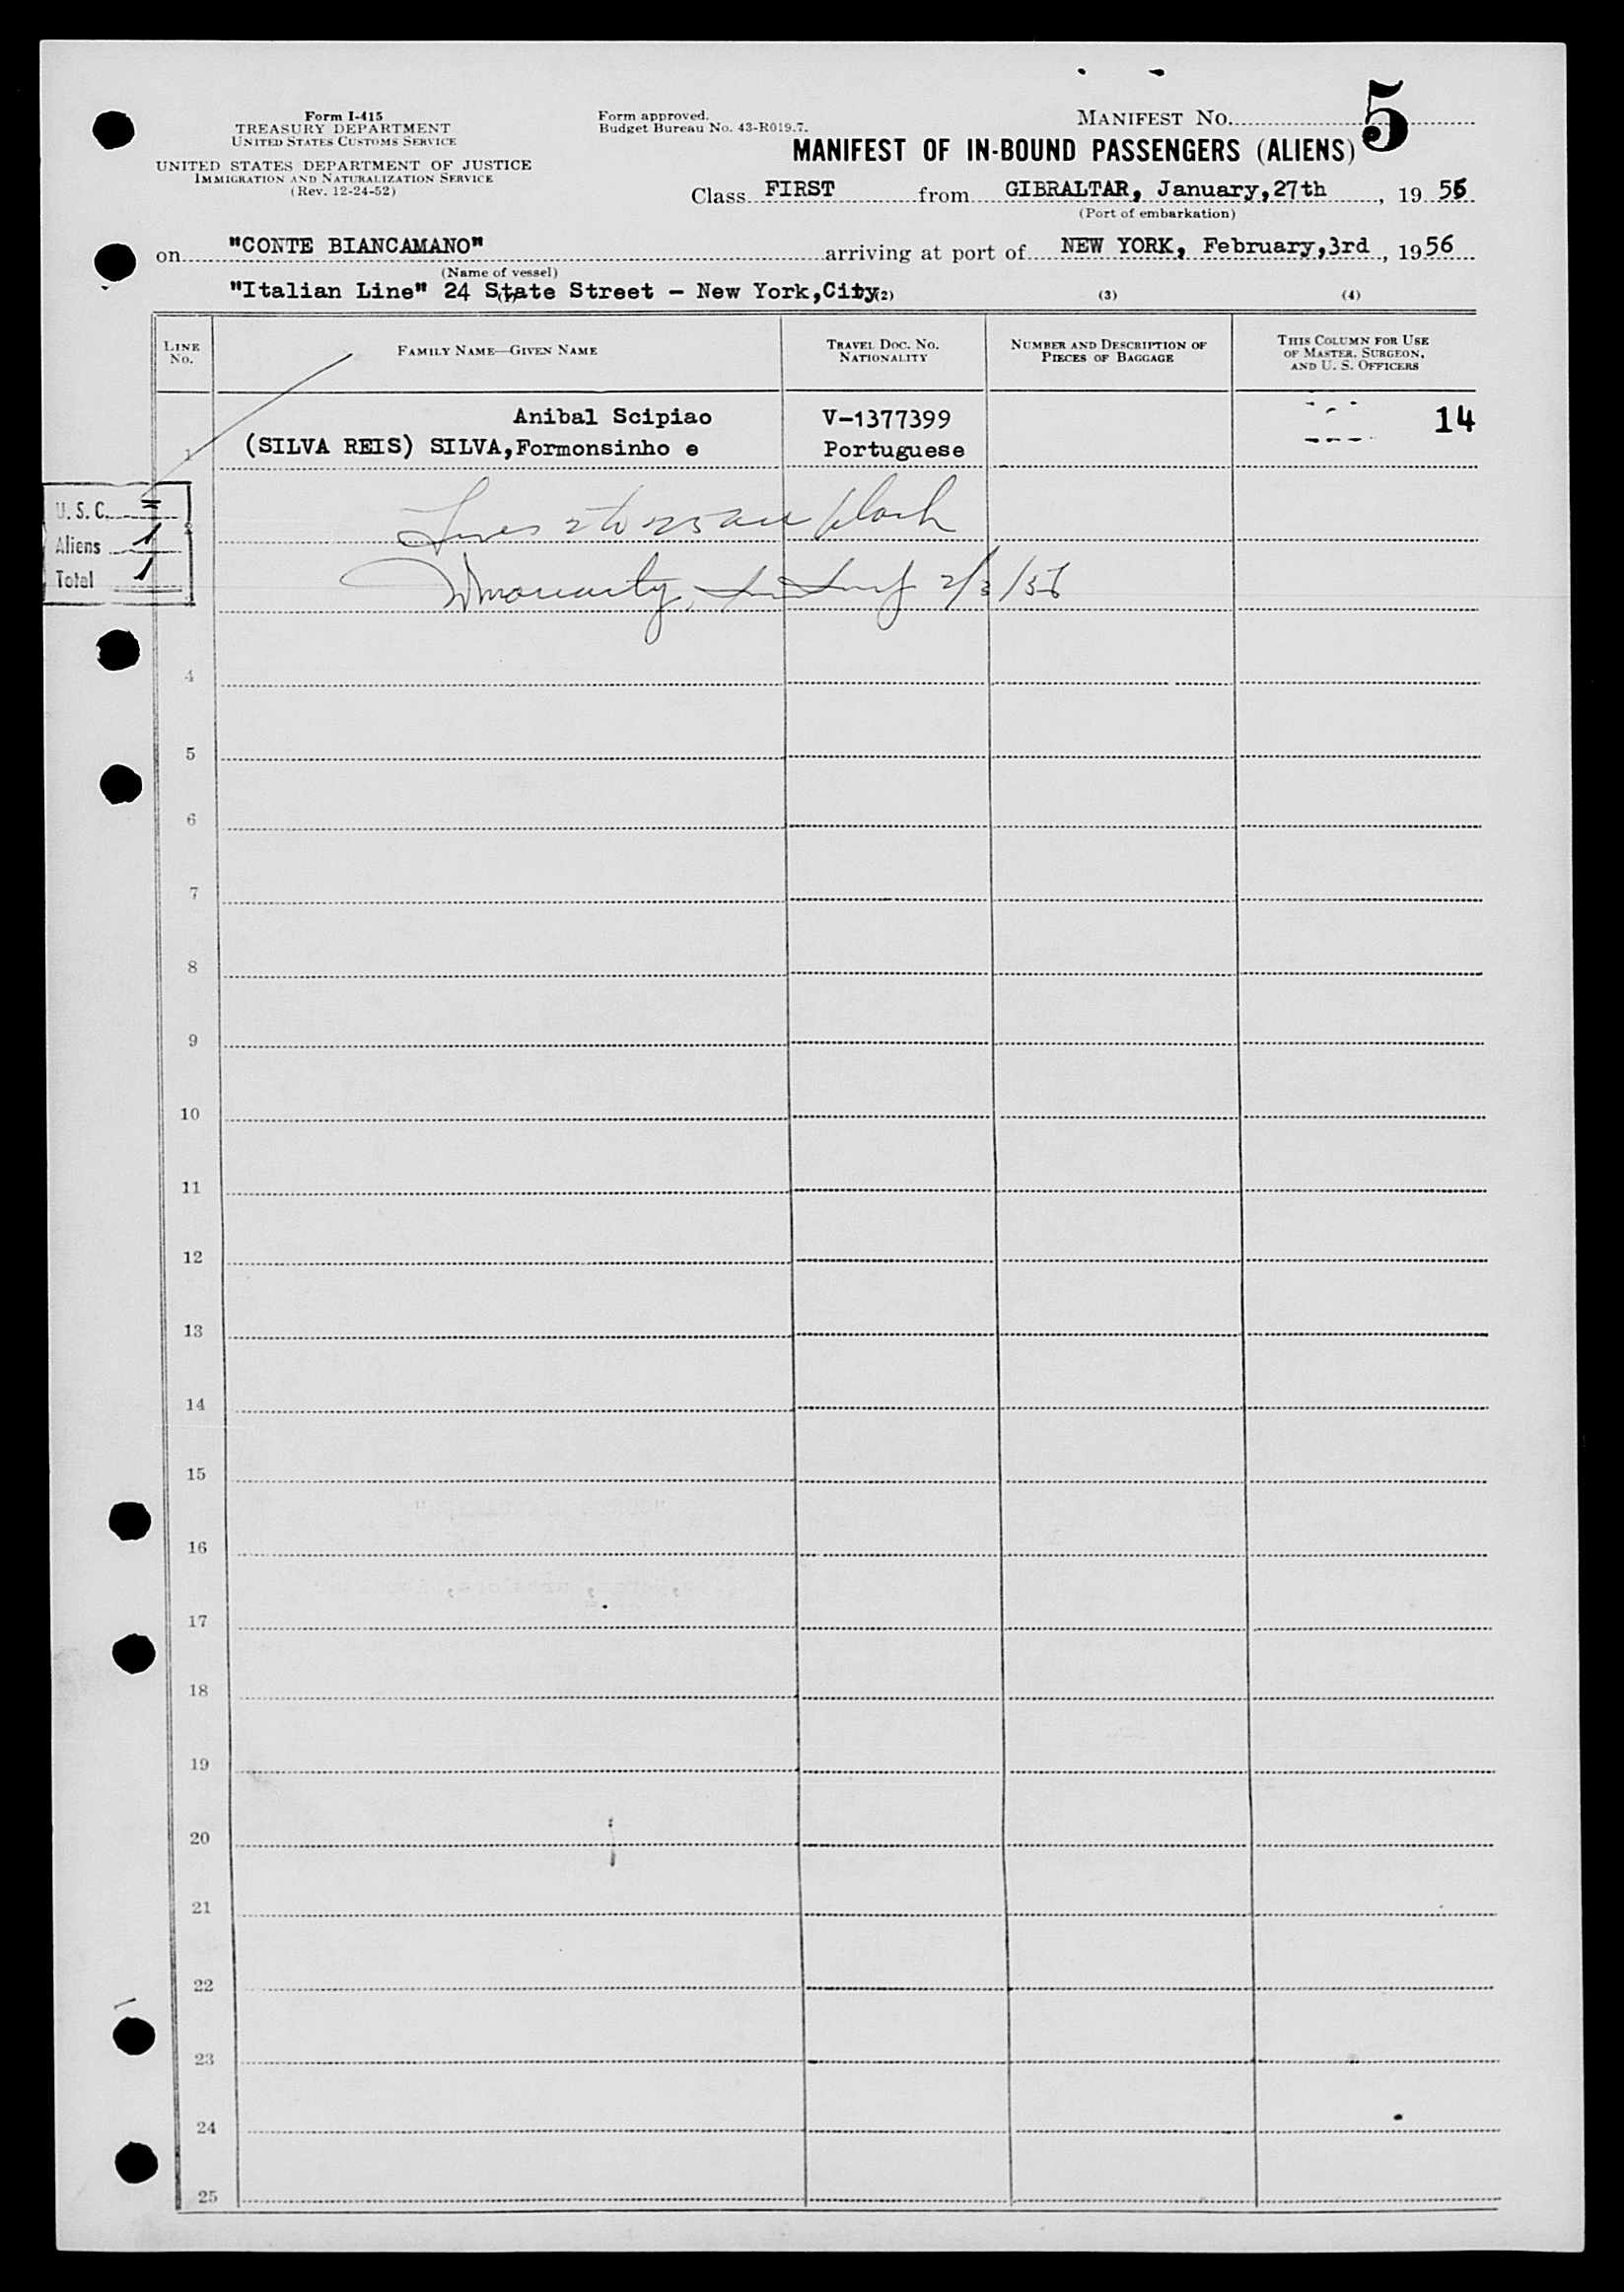 Form I-415
TREASURY DEPARTMENT
UNITED STATES CUSTOMS SERVICE
UNITED STATES DEPARTMENT OF JUSTICE
IMMIGRATION AND NATURALIZATION SERVICE
(Rev. 12-24-52)
Form approved.
Budget Bureau No. 43-R019.7.
MANIFEST NO. 5
MANIFEST OF IN-BOUND PASSENGERS (ALIENS)
Class FIRST from GIBRALTAR, January,27th, 1956
(Port of embarkation)
on "CONTE BIANCAMANO" arriving at port of NEW YORK, February,3rd, 1956
(Name of vessel)
"Italian Line" 24 State Street - New York,City (2) (3) (4)
LINE NO. FAMILY NAME—GIVEN NAME TRAVEL DOC. NO. NATIONALITY NUMBER AND DESCRIPTION OF PIECES OF BAGGAGE THIS COLUMN FOR USE OF MASTER, SURGEON, AND U. S. OFFICERS
Anibal Scipiao V-1377399 14
1 (SILVA REIS) SILVA,Formonsinho e Portuguese
U. S. C. =
Aliens 1
Total 1
Lines 2 to 25 are blank
2/3/56
4
5
6
7
8
9
10
11
12
13
14
15
16
17
18
19
20
21
22
23
24
25